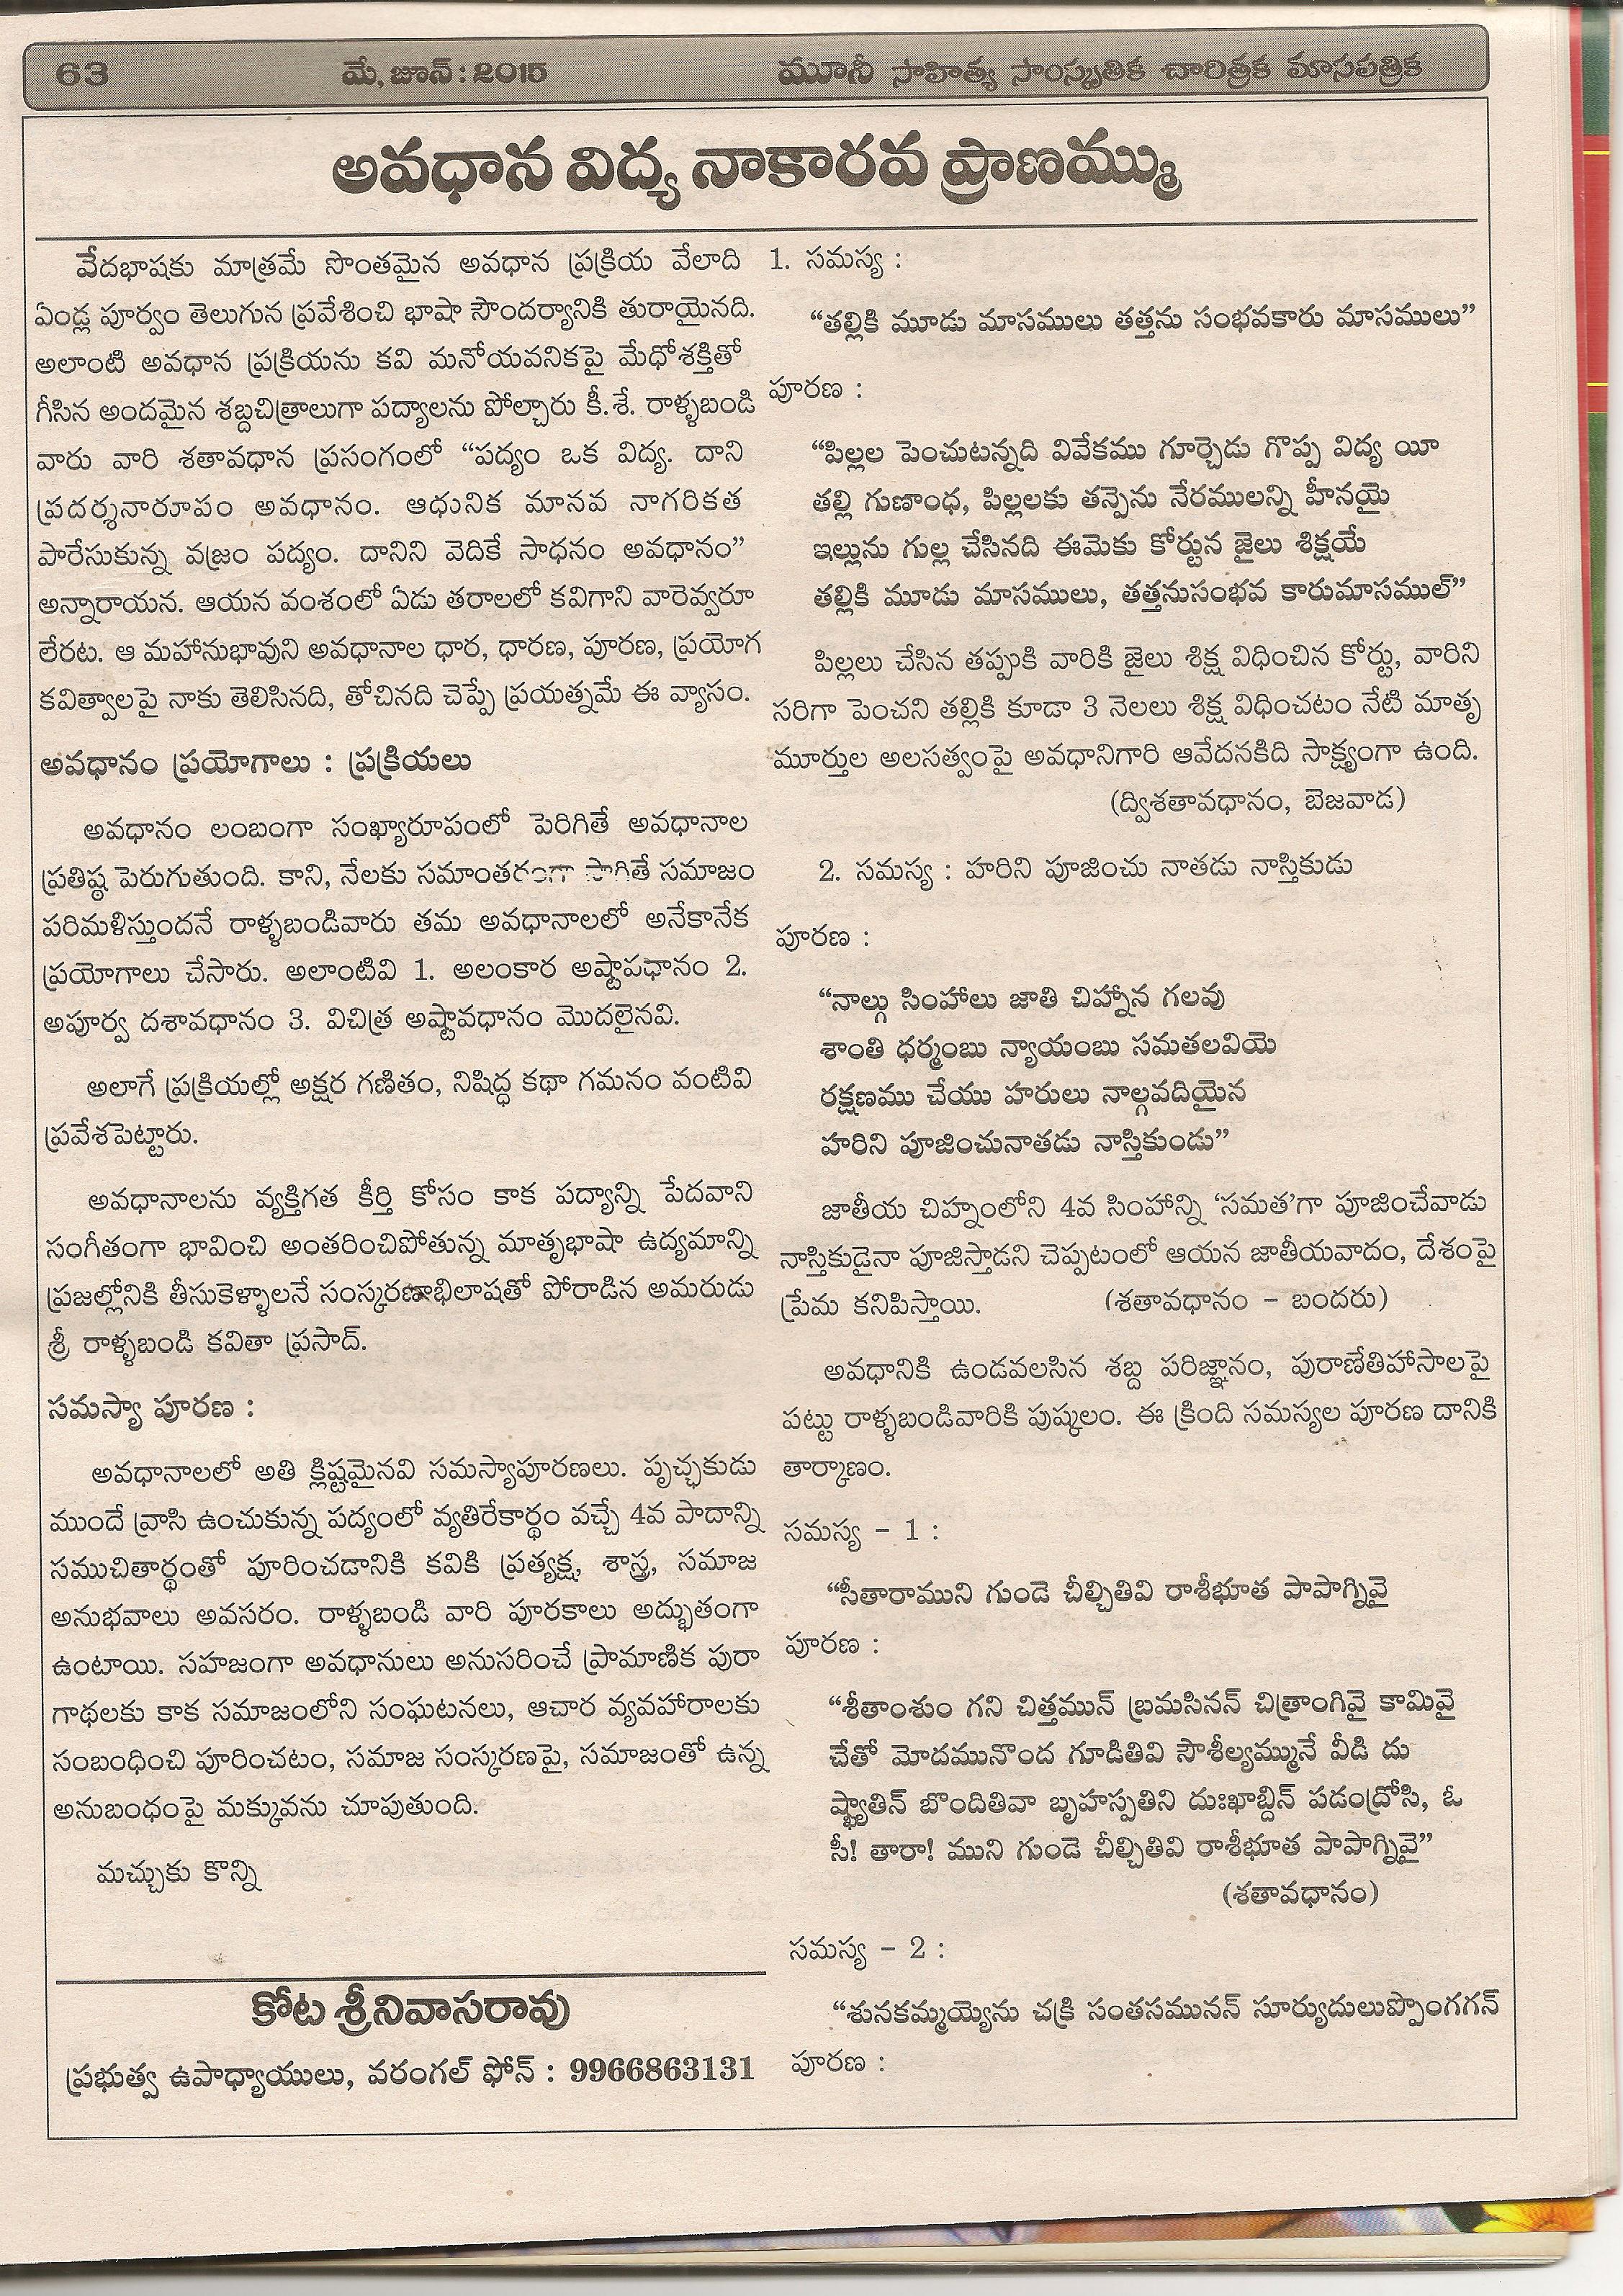 63 మే, జూన్ : 2015 మూసీ సాహిత్య సాంస్కృతిక చారిత్రక మాసపత్రిక
అవధాన విద్య నాకారవ ప్రాణమ్ము
వేదభాషకు మాత్రమే సొంతమైన అవధాన ప్రక్రియ వేలాది
ఏండ్ల పూర్వం తెలుగున ప్రవేశించి భాషా సౌందర్యానికి తురాయైనది.
అలాంటి అవధాన ప్రక్రియను కవి మనోయవనికపై మేధోశక్తితో
గీసిన అందమైన శబ్దచిత్రాలుగా పద్యాలను పోల్చారు కీ.శే. రాళ్ళబండి
వారు వారి శతావధాన ప్రసంగంలో “పద్యం ఒక విద్య. దాని
ప్రదర్శనారూపం అవధానం. ఆధునిక మానవ నాగరికత
పారేసుకున్న వజ్రం పద్యం. దానిని వెదికే సాధనం అవధానం”
అన్నారాయన. ఆయన వంశంలో ఏడు తరాలలో కవిగాని వారెవ్వరూ
లేరట. ఆ మహానుభావుని అవధానాల ధార, ధారణ, పూరణ, ప్రయోగ
కవిత్వాలపై నాకు తెలిసినది, తోచినది చెప్పే ప్రయత్నమే ఈ వ్యాసం.
అవధానం ప్రయోగాలు : ప్రక్రియలు
అవధానం లంబంగా సంఖ్యారూపంలో పెరిగితే అవధానాల
ప్రతిష్ఠ పెరుగుతుంది. కాని, నేలకు సమాంతరంగా సాగితే సమాజం
పరిమళిస్తుందనే రాళ్ళబండివారు తమ అవధానాలలో అనేకానేక
ప్రయోగాలు చేసారు. అలాంటివి 1. అలంకార అష్టావధానం 2.
అపూర్వ దశావధానం 3. విచిత్ర అష్టావధానం మొదలైనవి.
అలాగే ప్రక్రియల్లో అక్షర గణితం, నిషిద్ధ కథా గమనం వంటివి
ప్రవేశపెట్టారు.
అవధానాలను వ్యక్తిగత కీర్తి కోసం కాక పద్యాన్ని పేదవాని
సంగీతంగా భావించి అంతరించిపోతున్న మాతృభాషా ఉద్యమాన్ని
ప్రజల్లోనికి తీసుకెళ్ళాలనే సంస్కరణాభిలాషతో పోరాడిన అమరుడు
శ్రీ రాళ్ళబండి కవితా ప్రసాద్.
సమస్యా పూరణ :
అవధానాలలో అతి క్లిష్టమైనవి సమస్యాపూరణలు. పృచ్ఛకుడు
ముందే వ్రాసి ఉంచుకున్న పద్యంలో వ్యతిరేకార్థం వచ్చే 4వ పాదాన్ని
సముచితార్థంతో పూరించడానికి కవికి ప్రత్యక్ష, శాస్త్ర, సమాజ
అనుభవాలు అవసరం. రాళ్ళబండి వారి పూరకాలు అద్భుతంగా
ఉంటాయి. సహజంగా అవధానులు అనుసరించే ప్రామాణిక పురా
గాథలకు కాక సమాజంలోని సంఘటనలు, ఆచార వ్యవహారాలకు
సంబంధించి పూరించటం, సమాజ సంస్కరణపై, సమాజంతో ఉన్న
అనుబంధంపై మక్కువను చూపుతుంది.
మచ్చుకు కొన్ని
కోట శ్రీనివాసరావు
ప్రభుత్వ ఉపాధ్యాయులు, వరంగల్ ఫోన్ : 9966863131
1. సమస్య :
“తల్లికి మూడు మాసములు తత్తను సంభవకారు మాసములు”
పూరణ :
“పిల్లల పెంచుటన్నది వివేకము గూర్చెడు గొప్ప విద్య యీ
తల్లి గుణాంధ, పిల్లలకు తన్పెను నేరములన్ని హీనయై
ఇల్లును గుల్ల చేసినది ఈమెకు కోర్టున జైలు శిక్షయే
తల్లికి మూడు మాసములు, తత్తనుసంభవ కారుమాసముల్”
పిల్లలు చేసిన తప్పుకి వారికి జైలు శిక్ష విధించిన కోర్టు, వారిని
సరిగా పెంచని తల్లికి కూడా 3 నెలలు శిక్ష విధించటం నేటి మాతృ
మూర్తుల అలసత్వంపై అవధానిగారి ఆవేదనకిది సాక్ష్యంగా ఉంది.
(ద్విశతావధానం, బెజవాడ)
2. సమస్య : హరిని పూజించు నాతడు నాస్తికుడు
పూరణ :
“నాల్గు సింహాలు జాతి చిహ్నాన గలవు
శాంతి ధర్మంబు న్యాయంబు సమతలవియె
రక్షణము చేయు హరులు నాల్గవదియైన
హరిని పూజించునాతడు నాస్తికుండు”
జాతీయ చిహ్నంలోని 4వ సింహాన్ని ‘సమత’గా పూజించేవాడు
నాస్తికుడైనా పూజిస్తాడని చెప్పటంలో ఆయన జాతీయవాదం, దేశంపై
ప్రేమ కనిపిస్తాయి. (శతావధానం – బందరు)
అవధానికి ఉండవలసిన శబ్ద పరిజ్ఞానం, పురాణేతిహాసాలపై
పట్టు రాళ్ళబండివారికి పుష్కలం. ఈ క్రింది సమస్యల పూరణ దానికి
తార్కాణం.
సమస్య – 1 :
“సీతారాముని గుండె చీల్చితివి రాశీభూత పాపాగ్నివై
పూరణ :
“శీతాంశుం గని చిత్తమున్ బ్రమసినన్ చిత్రాంగివై కామివై
చేతో మోదమునొంద గూడితివి సౌశీల్యమ్మునే వీడి దు
ష్ఖ్యాతిన్ బొందితివా బృహస్పతిని దుఃఖాబ్ధిన్ పడంద్రోసి, ఓ
సీ! తారా! ముని గుండె చీల్చితివి రాశీభూత పాపాగ్నివై”
(శతావధానం)
సమస్య – 2 :
“శునకమ్మయ్యెను చక్రి సంతసమునన్ సూర్యుదులుప్పొంగగన్
పూరణ :